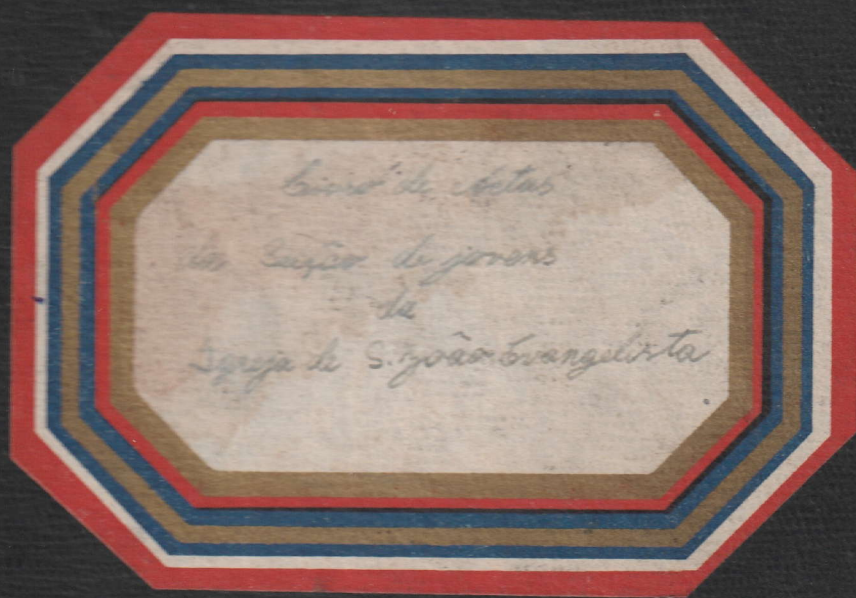 Livro de Actas
da Secção de jovens
da
Igreja de S. João Evangelista